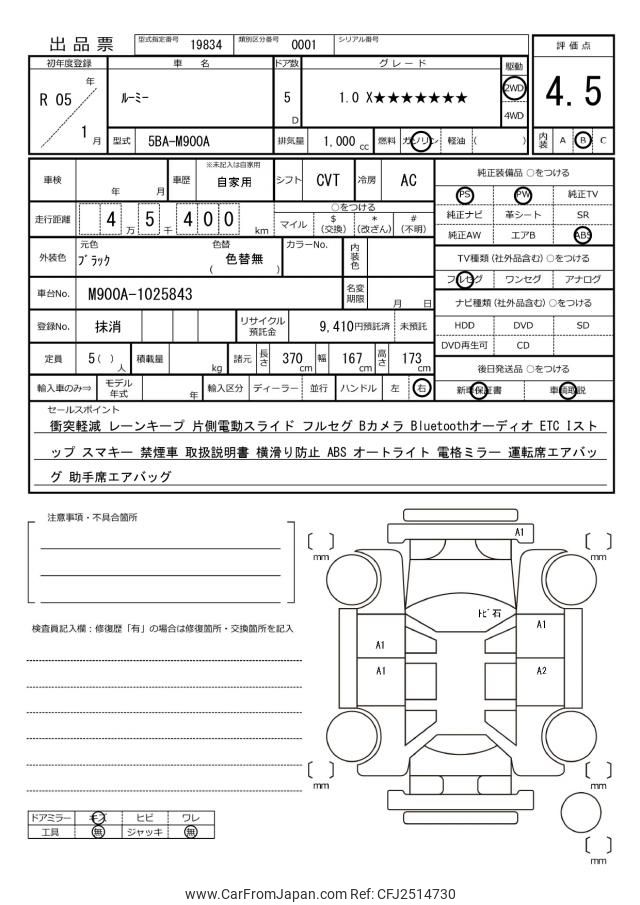 出品票 型式指定番号 19834 類別区分番号 0001 シリアル番号
初年度登録 車 名 ドア数 グレード 駆動 評価点
R 05 年 1 月 ルーミー 5 D 1.0 X★★★★★★★ 2WD 4WD 4.5
型式 5BA-M900A 排気量 1,000 cc 燃料 ガソリン 軽油 ( ) 内装 A B C
車検 年 月 車歴 ※未記入は自家用 自家用 シフト CVT 冷房 AC
走行距離 4 万 5 千 4 0 0 km ○をつける
マイル $ (交換) * (改ざん) # (不明)
外装色 元色 ブラック 色替 ( 色替無 ) カラーNo. 内装色
車台No. M900A-1025843 名変期限 月 日
登録No. 抹消 リサイクル預託金 9,410円預託済 未預託
定員 5 ( ) 人 積載量 kg 諸元 長さ 370 cm 幅 167 cm 高さ 173 cm
輸入車のみ⇒ モデル年式 年 輸入区分 ディーラー 並行 ハンドル 左 右
純正装備品 ○をつける
PS PW 純正TV
純正ナビ 革シート SR
純正AW エアB ABS
TV種類 (社外品含む) ○をつける
フルセグ ワンセグ アナログ
ナビ種類 (社外品含む) ○をつける
HDD DVD SD
DVD再生可 CD
後日発送品 ○をつける
新車保証書 車輌取説
セールスポイント
衝突軽減 レーンキープ 片側電動スライド フルセグ Bカメラ Bluetoothオーディオ ETC Iスト
ップ スマキー 禁煙車 取扱説明書 横滑り防止 ABS オートライト 電格ミラー 運転席エアバッ
グ 助手席エアバッグ
注意事項・不具合箇所
検査員記入欄：修復歴「有」の場合は修復箇所・交換箇所を記入
A1
mm mm
トビ石
A1
A1
A1 A2
mm mm
mm
ドアミラー キズ ヒビ ワレ
工具 無 ジャッキ 無
www.CarFromJapan.com Ref: CFJ2514730